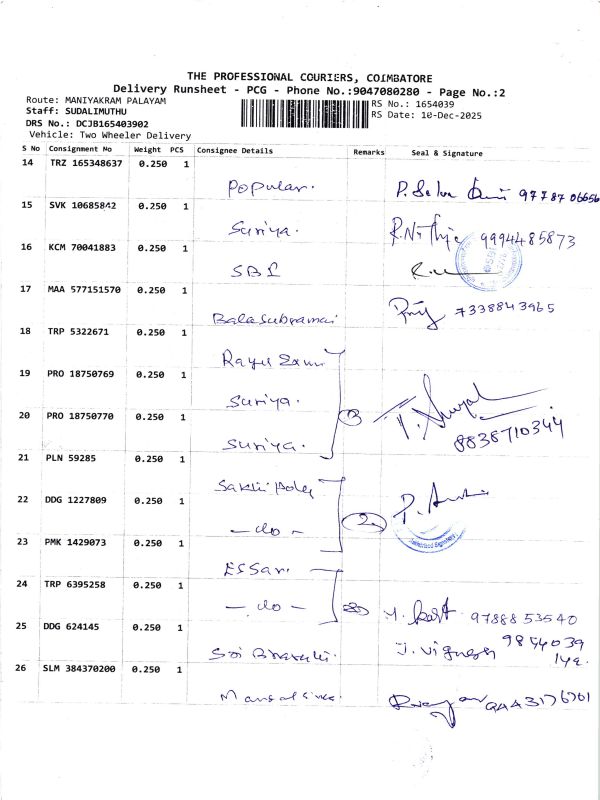 THE PROFESSIONAL COURIERS, COIMBATORE
Delivery Runsheet - PCG - Phone No.:9047080280 - Page No.:2
Route: MANIYAKRAM PALAYAM
RS No.: 1654039
Staff: SUDALIMUTHU
RS Date: 10-Dec-2025
DRS No.: DCJB165403902
Vehicle: Two Wheeler Delivery
S No Consignment No Weight PCS Consignee Details Remarks Seal & Signature
14 TRZ 165348637 0.250 1
Popular.
15 SVK 10685842 0.250 1
Suriya. 9994485873
16 KCM 70041883 0.250 1
SBI
17 MAA 577151570 0.250 1
Balasubramai 7338843965
18 TRP 5322671 0.250 1
19 PRO 18750769 0.250 1
Suriya.
20 PRO 18750770 0.250 1
Suriya. 8838710344
21 PLN 59285 0.250 1
22 DDG 1227809 0.250 1
- do -
23 PMK 1429073 0.250 1
ESSar.
24 TRP 6395258 0.250 1
- do - 97888 53540
25 DDG 624145 0.250 1
J. Vignesh
26 SLM 384370200 0.250 1